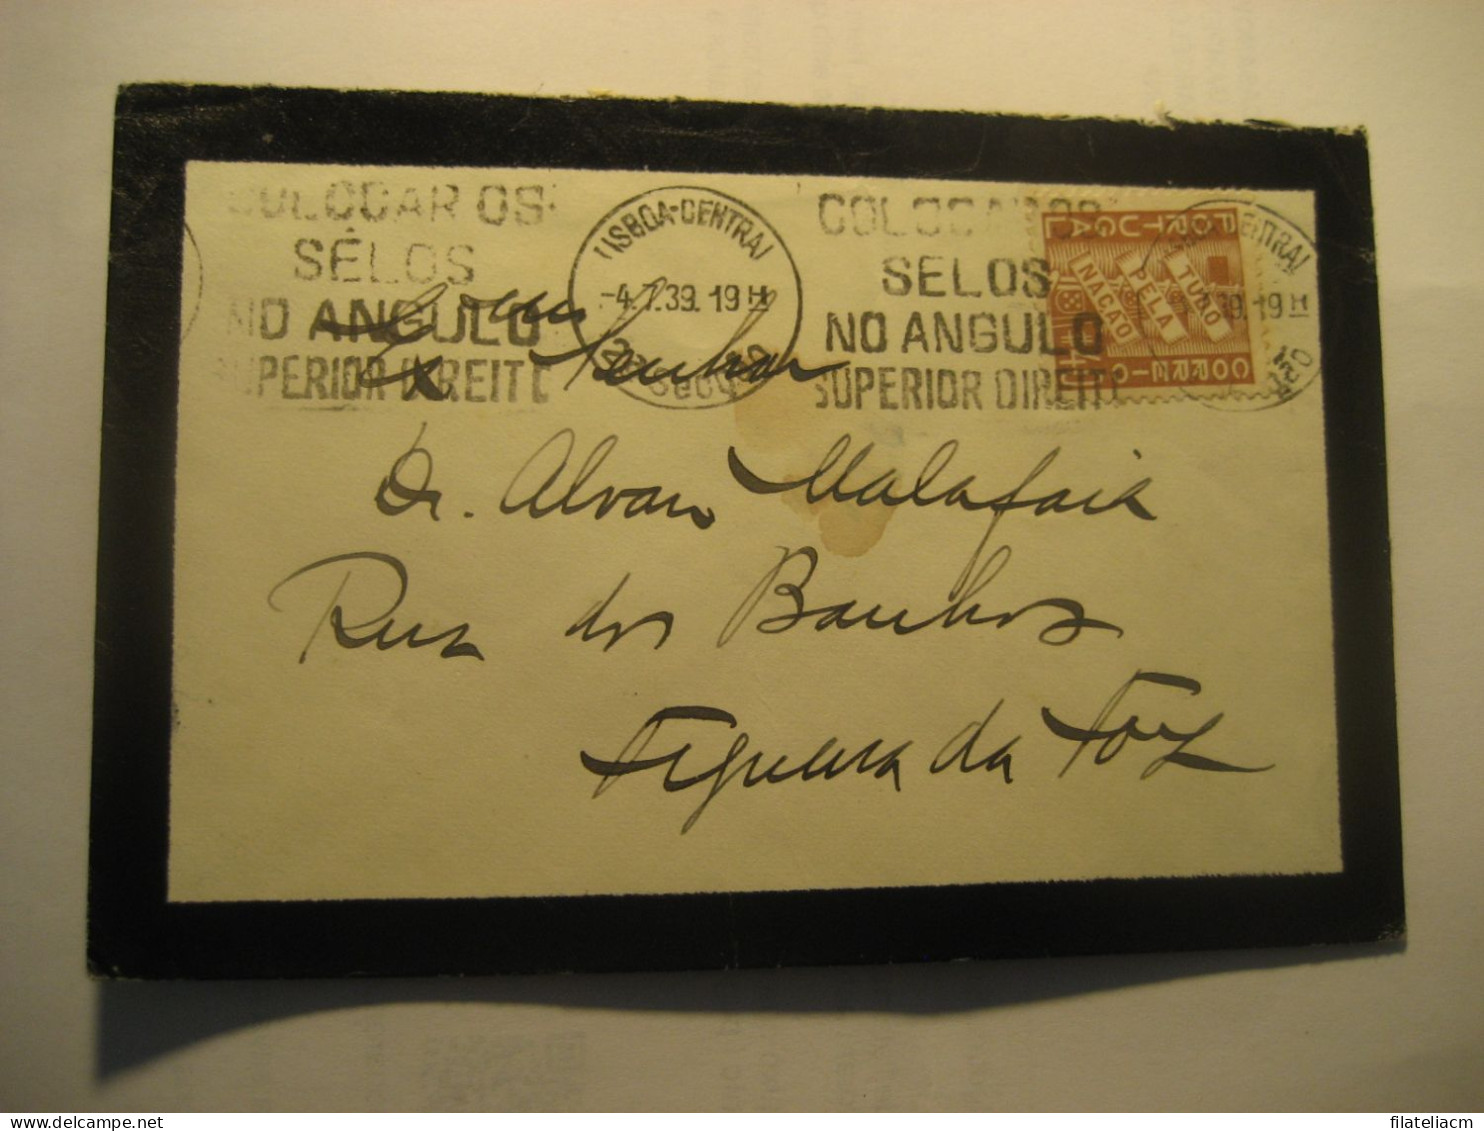 COLOCAR OS
SÉLOS
NO ANGULO
SUPERIOR DIREITO
LISBOA-CENTRAL
-4.7.39. 19 H
2ª Secção
COLOCAR OS
SELOS
NO ANGULO
SUPERIOR DIREITO
CENTRAL
39. 19 H
PORTUGAL
TUDO
PELA
NAÇÃO
CORREIO
Exmo Senhor
Dr. Alvaro Malafaia
Rua dos Banhos
Figueira da Foz
filateliacm